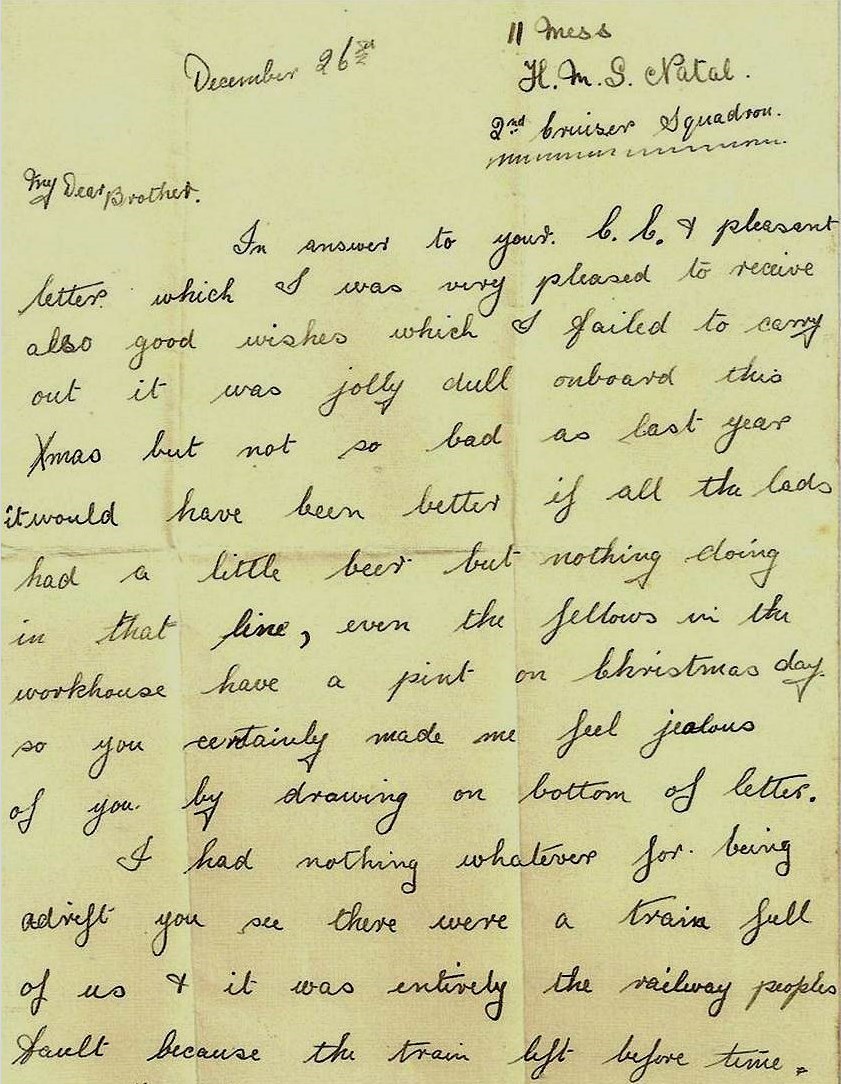 11 Mess
December 26th
H.M.S. Natal.
2nd Cruiser Squadron.
My Dear Brother.
In answer to your. C.C. & pleasant
letter which I was very pleased to receive
also good wishes which I failed to carry
out it was jolly dull onboard this
Xmas but not so bad as last year
it would have been better if all the lads
had a little beer but nothing doing
in that line, even the fellows in the
workhouse have a pint on Christmas day.
so you certainly made me feel jealous
of you. by drawing on bottom of letter.
I had nothing whatever for being
adrift you see there were a train full
of us & it was entirely the railway peoples
fault because the train left before time.